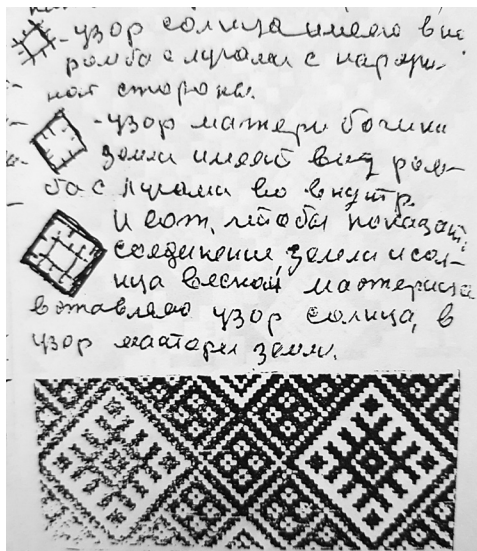 - узор солнца имеет ви
ромба с лучами с наруж-
ной стороны.
- узор матери богини
земли имеет вид ром-
ба с лучами во внутр.
И вот, чтобы показать
соединение земли и сол-
нца весной, мастерица
вставляет узор солнца, в
узор матери земли.